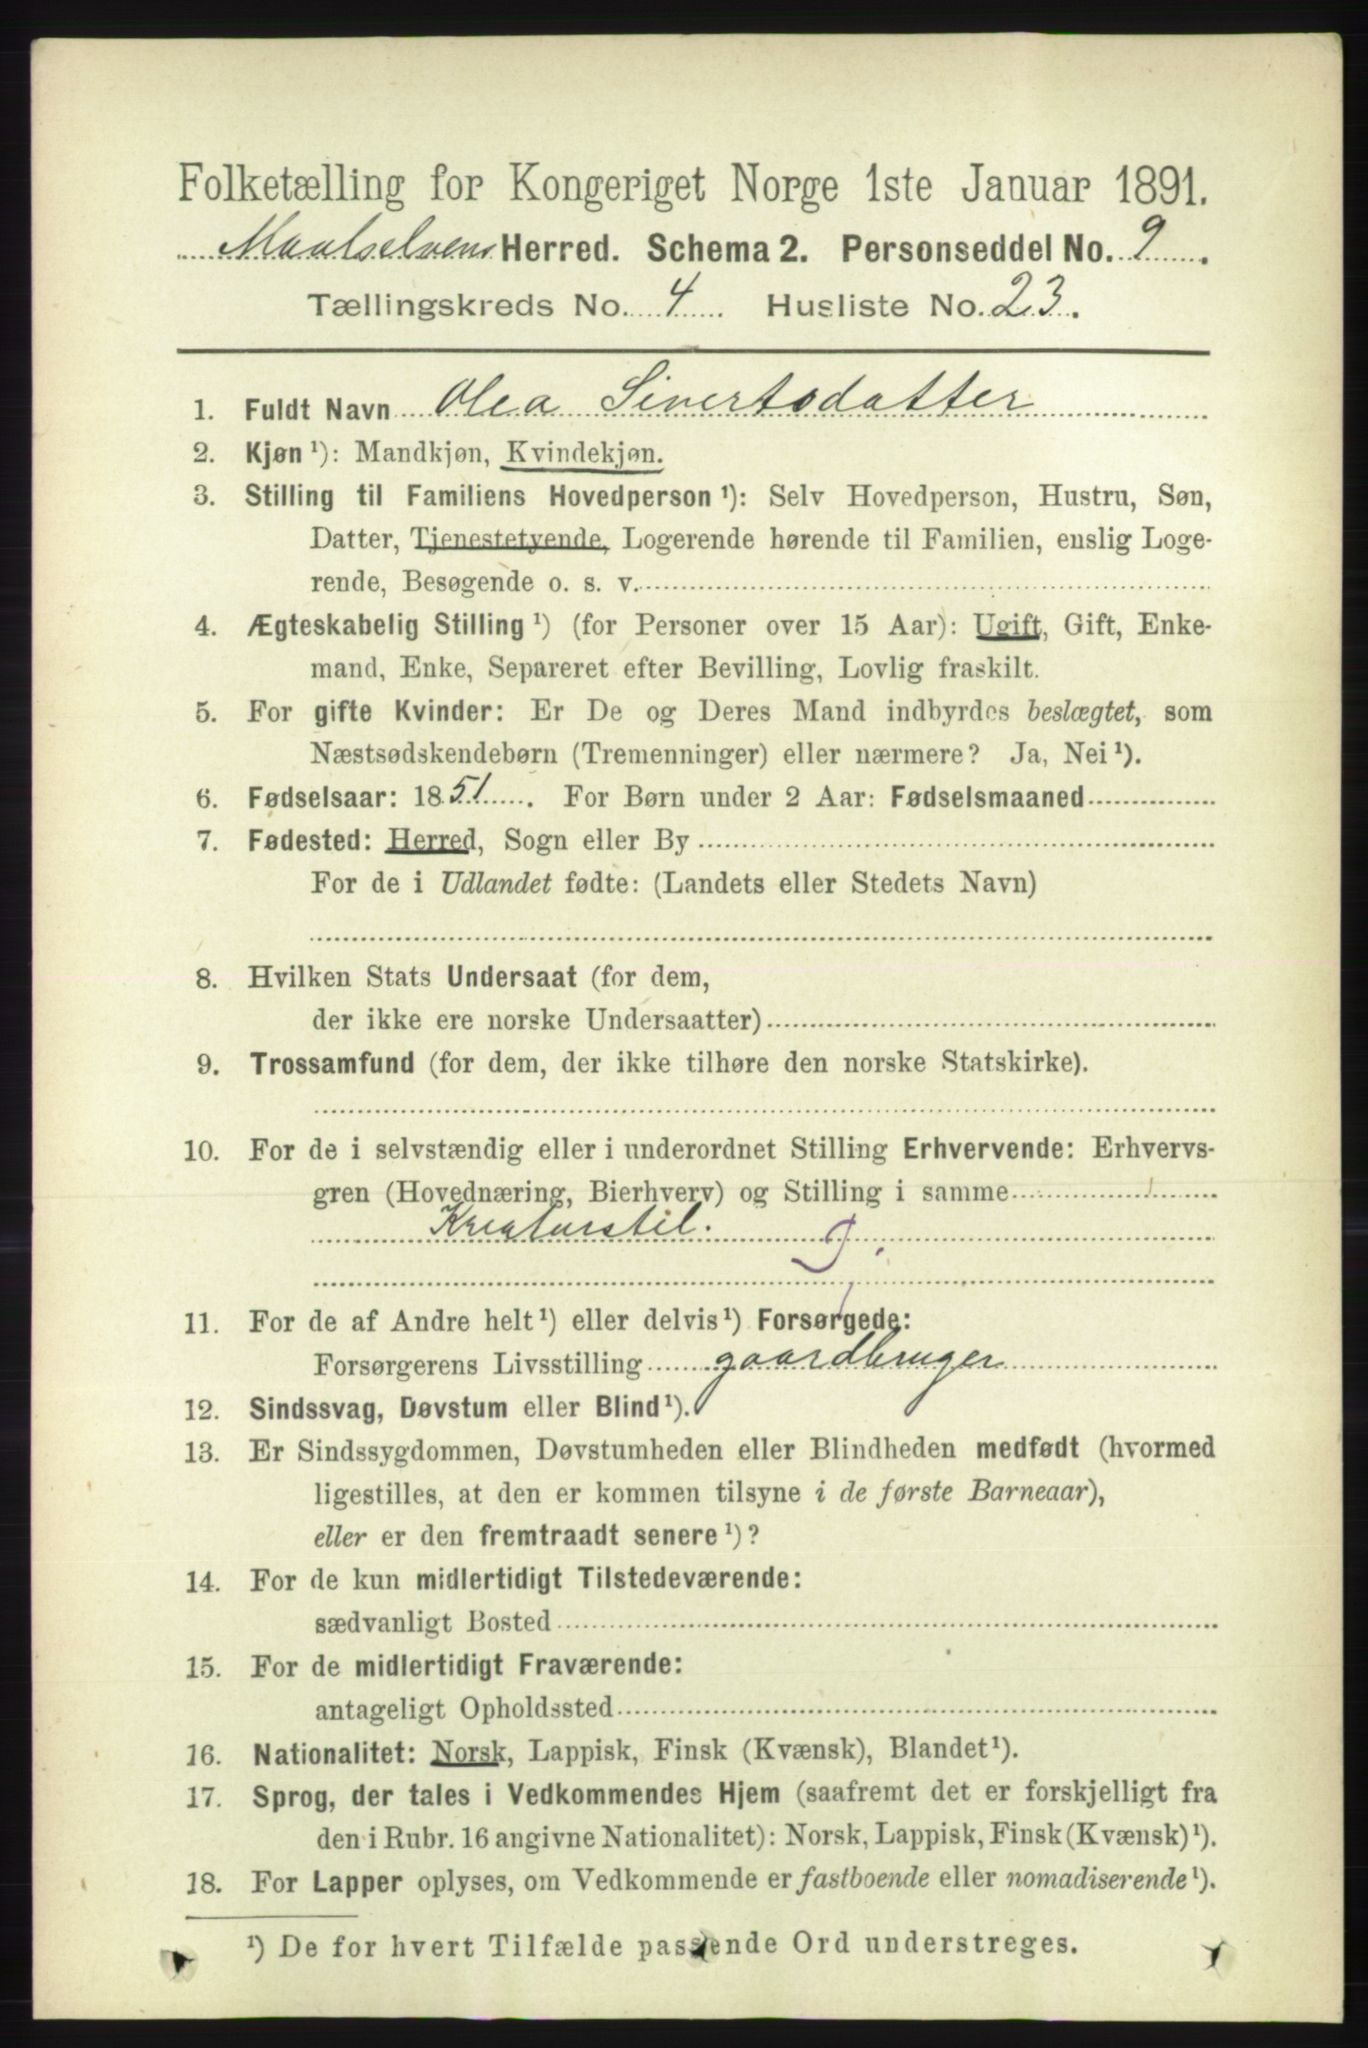 Folketælling for Kongeriget Norge 1ste Januar 1891.
Maalselvens Herred. Schema 2. Personseddel No. 9.
Tællingskreds No. 4 Husliste No. 23.
1. Fuldt Navn Olea Sivertsdatter
2. Kjøn ¹): Mandkjøn, Kvindekjøn.
3. Stilling til Familiens Hovedperson ¹): Selv Hovedperson, Hustru, Søn,
Datter, Tjenestetyende, Logerende hørende til Familien, enslig Loge-
rende, Besøgende o. s. v.
4. Ægteskabelig Stilling ¹) (for Personer over 15 Aar): Ugift, Gift, Enke-
mand, Enke, Separeret efter Bevilling, Lovlig fraskilt.
5. For gifte Kvinder: Er De og Deres Mand indbyrdes beslægtet, som
Næstsødskendebørn (Tremenninger) eller nærmere? Ja, Nei ¹).
6. Fødselsaar: 1851. For Børn under 2 Aar: Fødselsmaaned
7. Fødested: Herred, Sogn eller By
For de i Udlandet fødte: (Landets eller Stedets Navn)
8. Hvilken Stats Undersaat (for dem,
der ikke ere norske Undersaatter)
9. Trossamfund (for dem, der ikke tilhøre den norske Statskirke).
10. For de i selvstændig eller i underordnet Stilling Erhvervende: Erhvervs-
gren (Hovednæring, Bierhverv) og Stilling i samme
Kreaturstil.
11. For de af Andre helt ¹) eller delvis ¹) Forsørgede:
Forsørgerens Livsstilling gaardbruger
12. Sindssvag, Døvstum eller Blind ¹).
13. Er Sindssygdommen, Døvstumheden eller Blindheden medfødt (hvormed
ligestilles, at den er kommen tilsyne i de første Barneaar),
eller er den fremtraadt senere ¹)?
14. For de kun midlertidigt Tilstedeværende:
sædvanligt Bosted
15. For de midlertidigt Fraværende:
antageligt Opholdssted
16. Nationalitet: Norsk, Lappisk, Finsk (Kvænsk), Blandet ¹).
17. Sprog, der tales i Vedkommendes Hjem (saafremt det er forskjelligt fra
den i Rubr. 16 angivne Nationalitet): Norsk, Lappisk, Finsk (Kvænsk) ¹).
18. For Lapper oplyses, om Vedkommende er fastboende eller nomadiserende ¹).
¹) De for hvert Tilfælde passende Ord understreges.